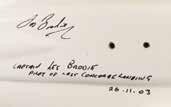 Les Brodie
CAPTAIN LES BRODIE
PILOT OF LAST CONCORDE LANDING
26.11.03